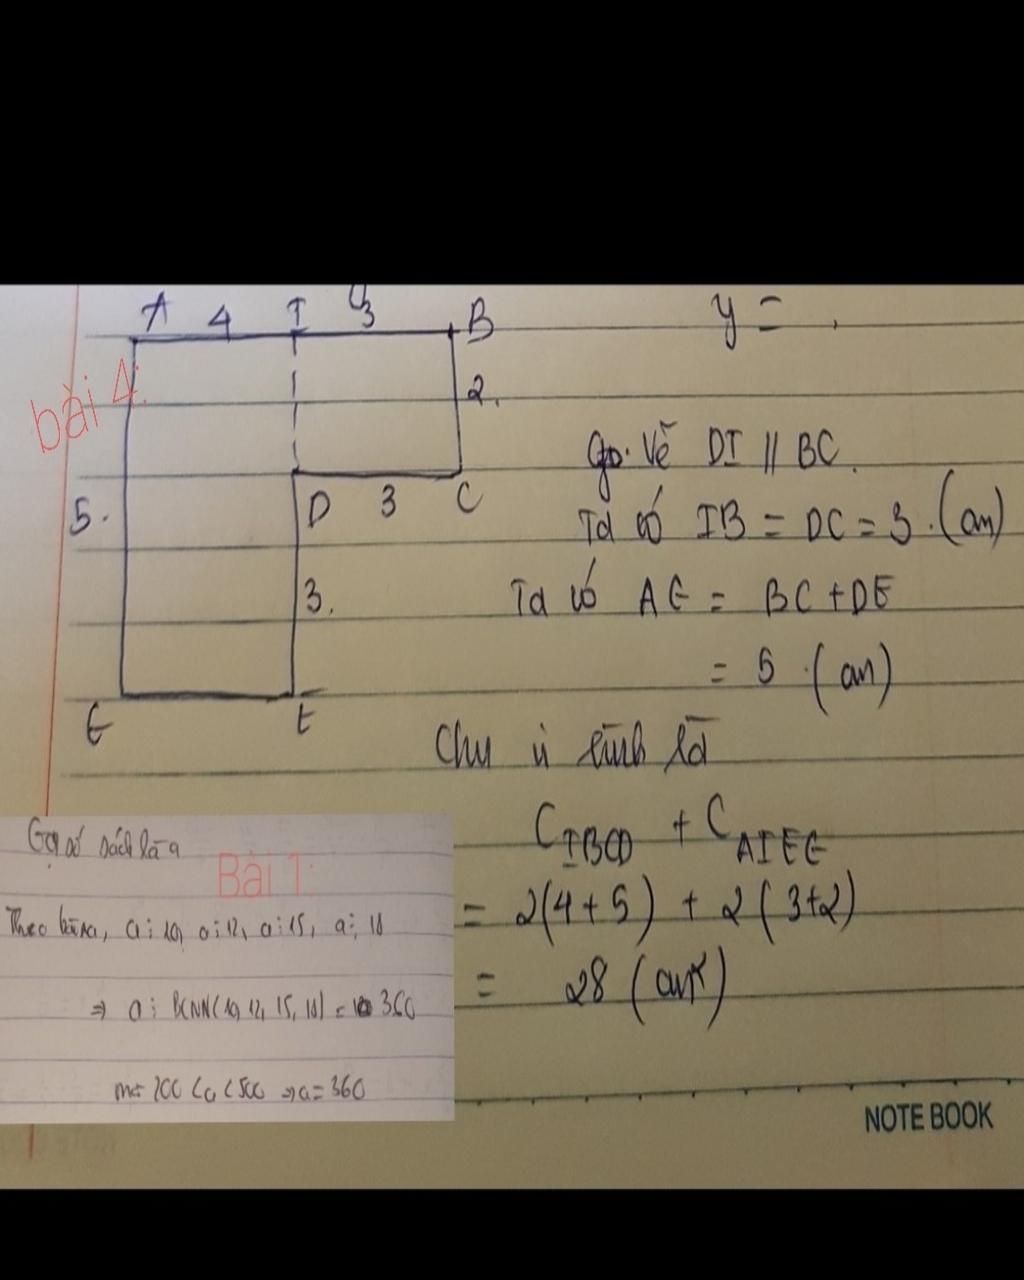 A 4 I 3 B
y = .
bài 4:
2.
Vẽ DI // BC.
5. D 3 C
Ta có IB = DC = 3 . (cm)
3. Ta có AG = BC + DE
= 5 . (cm)
G E
Chu vi hình là
C IBCD + C AIEG
= 2(4+5) + 2(3+2)
= 28 (cm)
Gọi số sách là a
Bài 1:
Theo bài ra, a ⋮ 10, a ⋮ 12, a ⋮ 15, a ⋮ 18
⇒ a ⋮ BCNN(10, 12, 15, 18) = 360
mà 200 < a < 500 ⇒ a = 360
NOTE BOOK